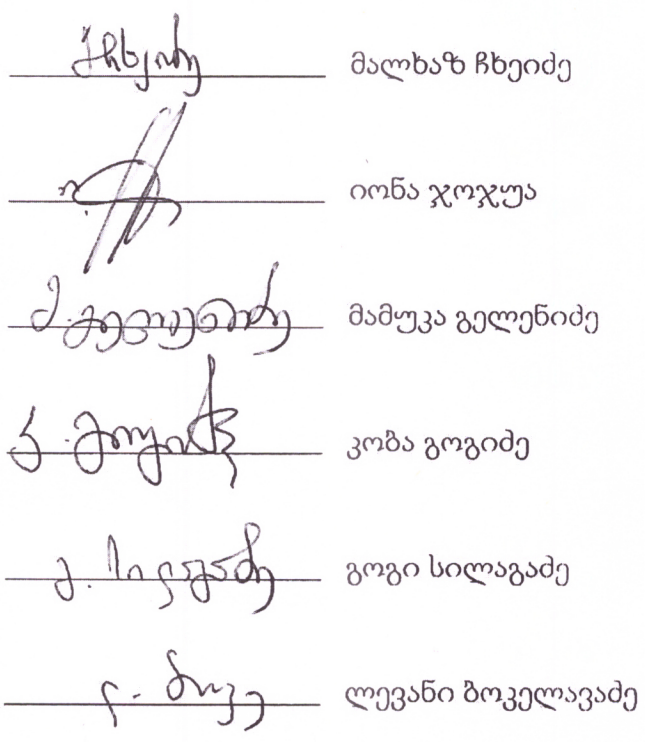 მალხაზ ჩხეიძე
იონა ჯოჯუა
მ. გელენიძე მამუკა გელენიძე
კ. გოგიძე კობა გოგიძე
გ. სილაგაძე გოგი სილაგაძე
ლევანი ბოკელავაძე